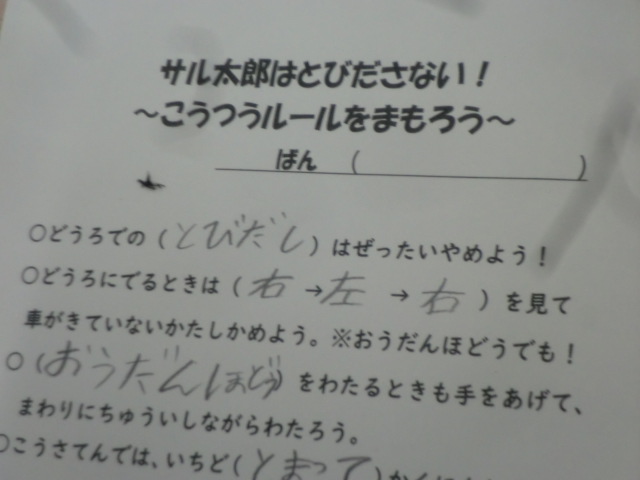 サル太郎はとびださない！
～こうつうルールをまもろう～
ばん （　　　　　　）
○どうろでの（とびだし）はぜったいやめよう！
○どうろにでるときは（右→左→右）を見て
車がきていないかたしかめよう。※おうだんほどうでも！
○（おうだんほどう）をわたるときも手をあげて、
まわりにちゅういしながらわたろう。
○こうさてんでは、いちど（とまって）